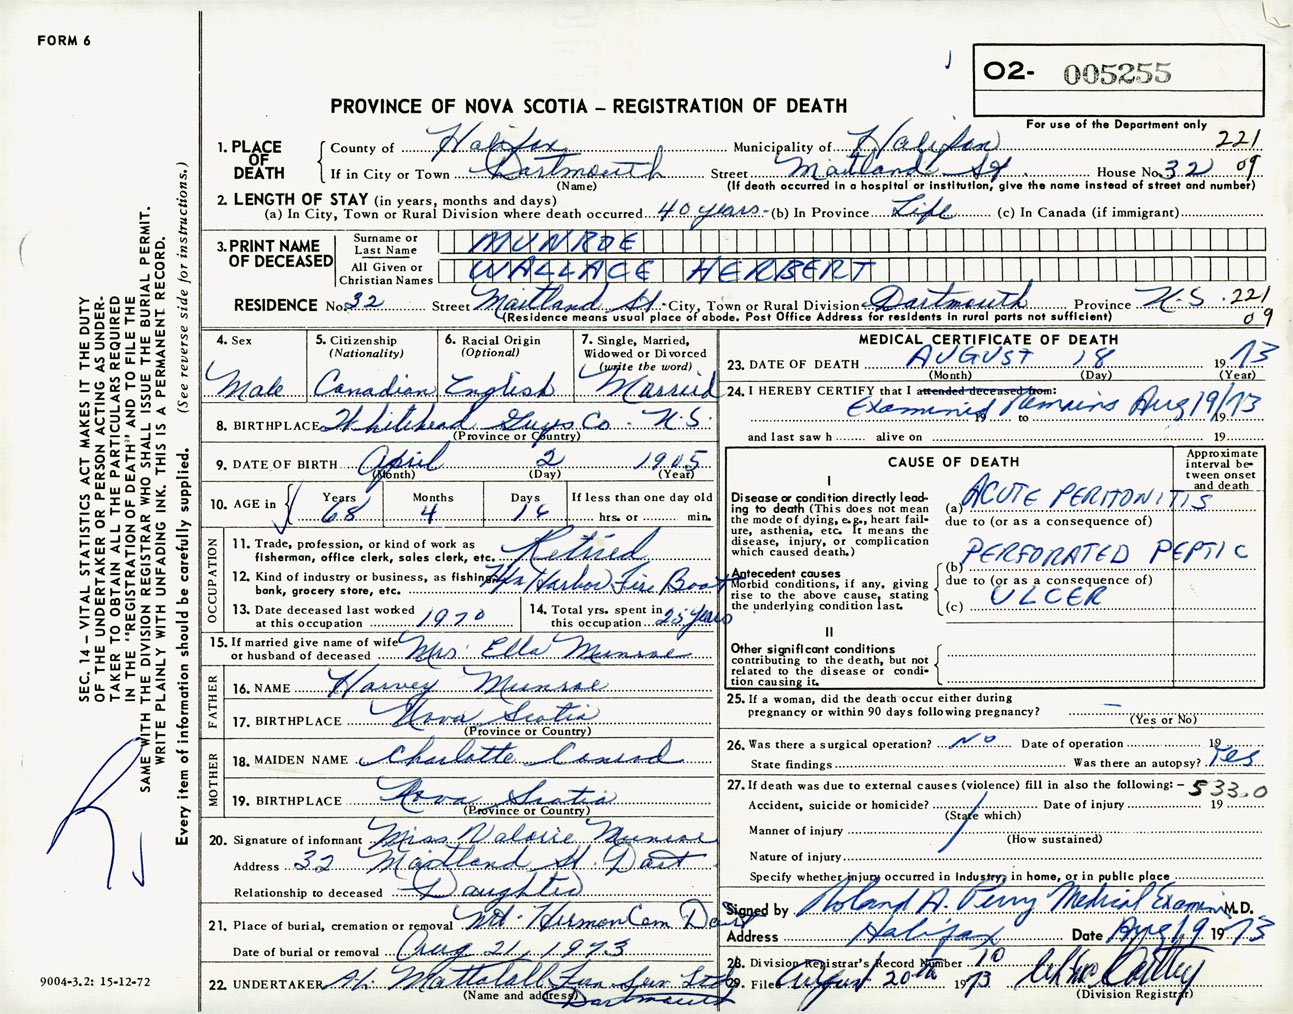 FORM 6
O2- 005255
PROVINCE OF NOVA SCOTIA – REGISTRATION OF DEATH
For use of the Department only
221
09
1. PLACE OF DEATH
County of Halifax Municipality of Halifax
If in City or Town Dartmouth Street Maitland St. House No. 32
(Name) (If death occurred in a hospital or institution, give the name instead of street and number)
2. LENGTH OF STAY (in years, months and days)
(a) In City, Town or Rural Division where death occurred 40 years - (b) In Province Life (c) In Canada (if immigrant)
3. PRINT NAME OF DECEASED
Surname or Last Name MUNROE
All Given or Christian Names WALLACE HERBERT
RESIDENCE No. 32 Street Maitland St. City, Town or Rural Division Dartmouth Province N.S. 221
(Residence means usual place of abode. Post Office Address for residents in rural parts not sufficient) 09
4. Sex
Male
5. Citizenship (Nationality)
Canadian
6. Racial Origin (Optional)
English
7. Single, Married, Widowed or Divorced (write the word)
Married
8. BIRTHPLACE Whitehead Guys Co. N.S.
(Province or Country)
9. DATE OF BIRTH April 2 1905
(Month) (Day) (Year)
10. AGE in Years Months Days If less than one day old
68 4 16 hrs. or min.
OCCUPATION
11. Trade, profession, or kind of work as fisherman, office clerk, sales clerk, etc. Retired
12. Kind of industry or business, as fishing, bank, grocery store, etc. Hfx Harbor Fire Boat
13. Date deceased last worked at this occupation 1970
14. Total yrs. spent in this occupation 25 years
15. If married give name of wife or husband of deceased Mrs. Ella Munroe
FATHER
16. NAME Harvey Munroe
17. BIRTHPLACE Nova Scotia
(Province or Country)
MOTHER
18. MAIDEN NAME Charlotte Conrad
19. BIRTHPLACE Nova Scotia
(Province or Country)
20. Signature of informant Miss Valorie Munroe
Address 32 Maitland St. Dart
Relationship to deceased Daughter
21. Place of burial, cremation or removal Mt. Hermon Cem Dart
Date of burial or removal Aug 21, 1973
22. UNDERTAKER Mattatall Fun. Ser. Ltd
(Name and address) Dartmouth
MEDICAL CERTIFICATE OF DEATH
23. DATE OF DEATH AUGUST 18 1973
(Month) (Day) (Year)
24. I HEREBY CERTIFY that I attended deceased from:
Examined Remains Aug 19/73
19 to 19
and last saw h alive on 19
CAUSE OF DEATH
Approximate interval between onset and death
I
Disease or condition directly leading to death (This does not mean the mode of dying, e.g., heart failure, asthenia, etc. It means the disease, injury, or complication which caused death.)
(a) ACUTE PERITONITIS
due to (or as a consequence of)
Antecedent causes
Morbid conditions, if any, giving rise to the above cause, stating the underlying condition last.
(b) PERFORATED PEPTIC
due to (or as a consequence of)
(c) ULCER
II
Other significant conditions contributing to the death, but not related to the disease or condition causing it.
25. If a woman, did the death occur either during pregnancy or within 90 days following pregnancy? –
(Yes or No)
26. Was there a surgical operation? No Date of operation 19
State findings Was there an autopsy? Yes
27. If death was due to external causes (violence) fill in also the following: – 533.0
Accident, suicide or homicide? Date of injury 19
(State which)
Manner of injury
(How sustained)
Nature of injury
Specify whether injury occurred in industry, in home, or in public place
Signed by Roland A. Perry Medical Examiner M.D.
Address Halifax Date Aug 19 1973
28. Division Registrar's Record Number 10
29. Filed August 20th 1973
(Division Registrar)
SEC. 14 – VITAL STATISTICS ACT MAKES IT THE DUTY
OF THE UNDERTAKER OR PERSON ACTING AS UNDER-
TAKER TO OBTAIN ALL THE PARTICULARS REQUIRED
IN THE "REGISTRATION OF DEATH" AND TO FILE THE
SAME WITH THE DIVISION REGISTRAR WHO SHALL ISSUE THE BURIAL PERMIT.
WRITE PLAINLY WITH UNFADING INK. THIS IS A PERMANENT RECORD.
Every item of information should be carefully supplied. (See reverse side for instructions.)
9004-3.2: 15-12-72